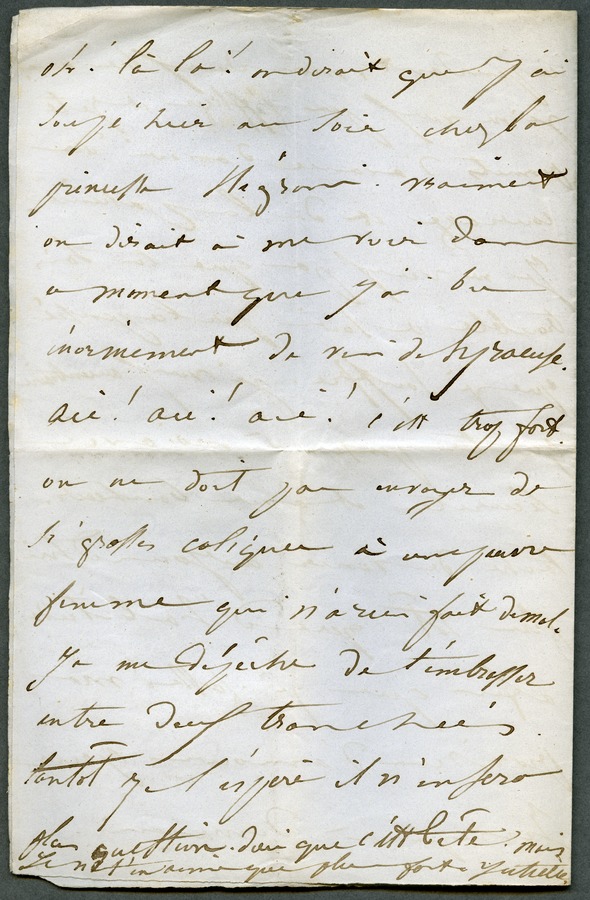 oh ! là là ! on dirait que j'ai
soupé hier au soir chez la
princesse Négroni. vraiment
on dirait à me voir dans
ce moment que j'ai bu
énormément de vin de Syracuse.
aïe ! aïe ! aïe ! c'est trop fort.
on ne doit pas envoyer de
si grosses coliques à une pauvre
femme qui n'a rien fait de mal.
Je me dépêche de t'embrasser
entre deux tranchées.
tantôt je l'espère il n'en sera
plus question. Dieu que c'est bête, mais
je n't'en aime que plus fort. Juliette